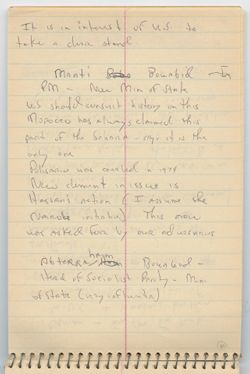 It is in interest of U.S. to
take a clear stand
Maati Bouabid -
PM - New Min of State
US should consult history on this
Morocco has always claimed this
part of the Sahara - it is the
only one
Polisario was created in 1974
New element in issue is
Hassan's action (I assume the
Nairobi initiative) This move
was asked for by our adversaries
Abderrahim Bouabid -
Head of Socialist Party - Min
of State (very influential)